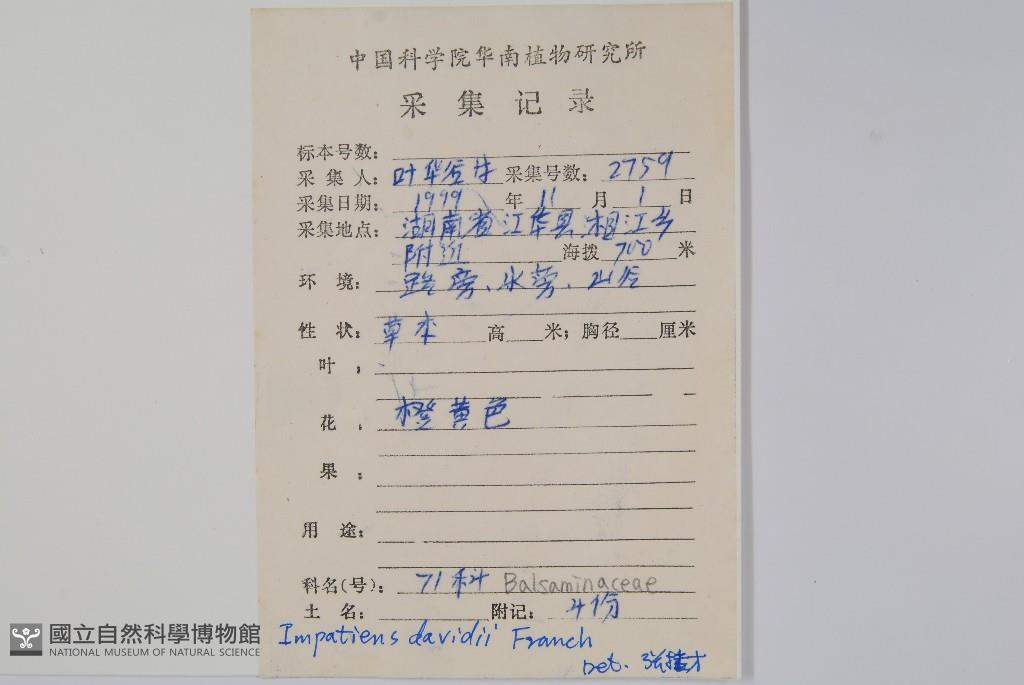 中国科学院华南植物研究所
采集记录
标本号数：
采集人：叶华谷 采集号数：2759
采集日期：1999年11月1日
采集地点：湖南省江华县湘江乡
附近 海拨700米
环境：路旁、水旁、山谷
性状：草本 高 米；胸径 厘米
叶：
花：橙黄色
果：
用途：
科名(号)：71科 Balsaminaceae
土名： 附记：4份
Impatiens davidii Franch
Det.
國立自然科學博物館
NATIONAL MUSEUM OF NATURAL SCIENCE